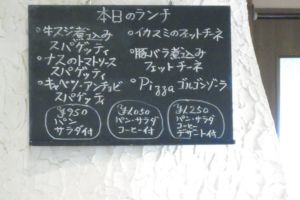 本日のランチ
°牛スジ煮込み
スパゲッティ
°ナスのトマトソース
スパゲッティ
°キャベツ・アンチョビ
スパゲッティ
°イカスミのフェットチーネ
°豚バラ煮込み
フェットチーネ
°Pizza ゴルゴンゾーラ
¥950
パン
サラダ付
¥1,050
パン・サラダ
コーヒー付
¥1,250
パン・サラダ
コーヒー
デザート付